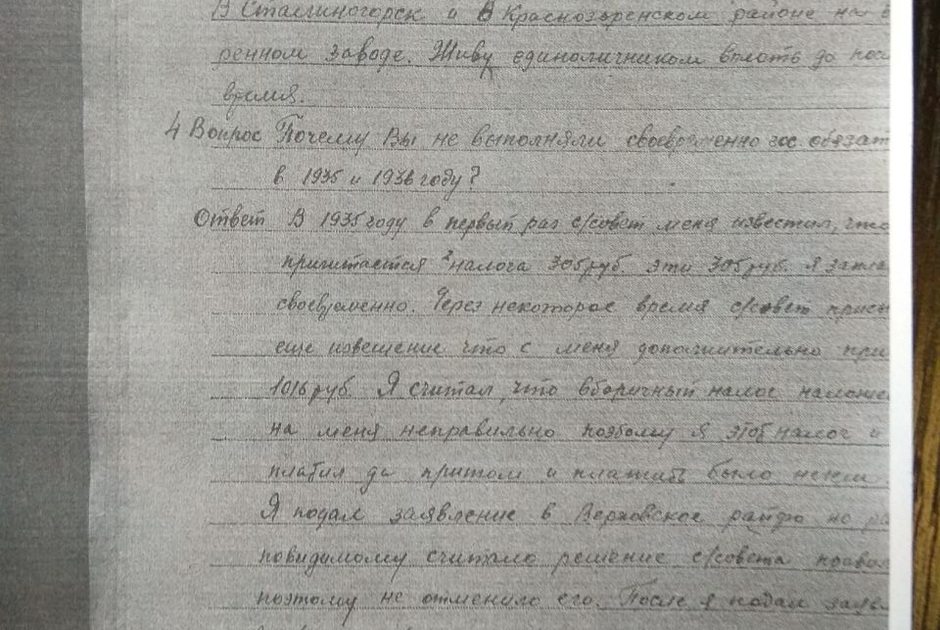 В Сталиногорск и в Краснозоренском районе на
ренном заводе. Живу единоличником вплоть до
время.
4 Вопрос Почему Вы не выполняли своевременно гос. обязат
в 1935 и 1936 году?
Ответ В 1935 году в первый раз с/совет меня известил, что
причитается налога 305 руб. эти 305 руб. я запла
своевременно. Через некоторое время с/совет присы
еще извещение что с меня дополнительно при
1016 руб. Я считал, что вторичный налог наложе
на меня неправильно поэтому я этот налог и
платил да притом и платить было нечем
Я подал заявление в Верховское райфо но ра
повидимому считало решение с/совета правил
поэтому не отменило его. После я подал заяв